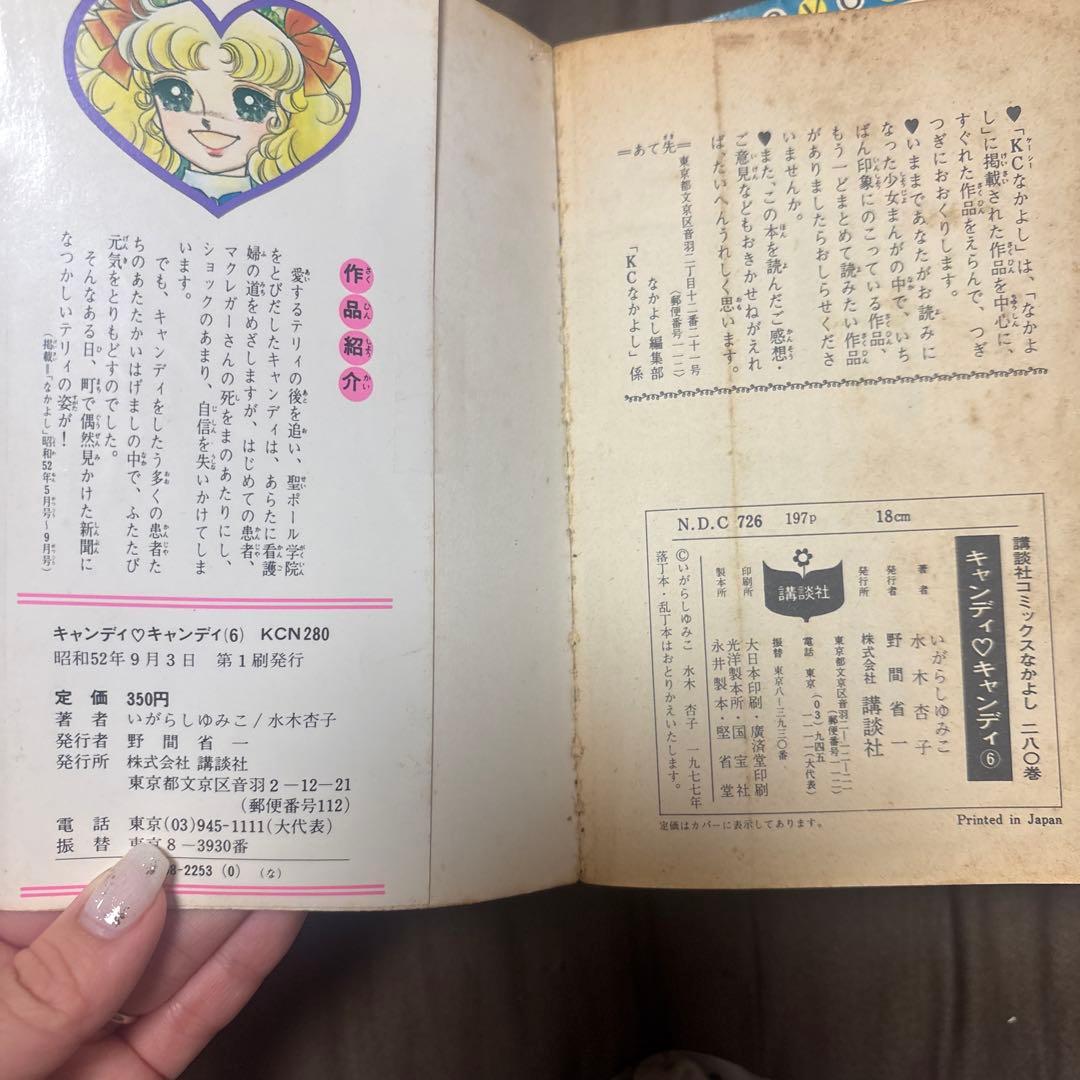 作品紹介
愛するテリィの後を追い、聖ポール学院
をとびだしたキャンディは、あらたに看護
婦の道をめざしますが、はじめての患者、
マクレガーさんの死をまのあたりにし、
ショックのあまり、自信を失いかけてしま
います。
でも、キャンディをしたう多くの患者た
ちのあたたかいはげましの中で、ふたたび
元気をとりもどすのでした。
そんなある日、町で偶然見かけた新聞に
なつかしいテリィの姿が!
(掲載「なかよし」昭和52年5月号~9月号)
キャンディ♡キャンディ(6) KCN280
昭和52年9月3日 第1刷発行
定価 350円
著者 いがらしゆみこ/水木杏子
発行者 野間省一
発行所 株式会社 講談社
東京都文京区音羽2-12-21
(郵便番号112)
電話 東京(03)945-1111(大代表)
振替 東京8-3930番
8-2253 (0) (な)
♥「KCなかよし」は、「なかよ
し」に掲載された作品を中心に、
すぐれた作品をえらんで、つぎ
つぎにおおくりします。
♥いままであなたがお読みに
なった少女まんがの中で、いち
ばん印象にのこっている作品、
もう一どまとめて読みたい作品
がありましたらおしらせくださ
いませんか。
♥また、この本を読んだご感想・
ご意見などもおきかせねがえれ
ば、たいへんうれしく思います。
=あて先=
東京都文京区音羽二丁目十二番二十一号
(郵便番号一一二)
なかよし編集部
「KCなかよし」係
N.D.C 726 197p 18cm
講談社コミックスなかよし 二八〇巻
キャンディ♡キャンディ⑥
著者 いがらしゆみこ
水木杏子
発行者 野間省一
発行所 株式会社 講談社
東京都文京区音羽二-一二-二一
(郵便番号一一二)
電話 東京(03)九四五
一一一一(大代表)
振替 東京八-三九三〇番
講談社
印刷所 大日本印刷・廣済堂印刷
製本所 光洋製本所・国宝社
永井製本・堅省堂
©いがらしゆみこ 水木杏子 一九七七年
落丁本・乱丁本はおとりかえいたします。
定価はカバーに表示してあります。
Printed in Japan